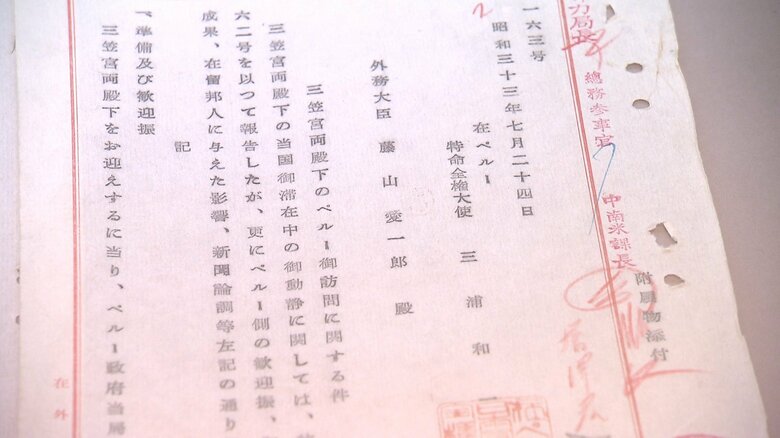 力局長
總務參事官
中南米課長
附属物添付
一六三号
昭和三十三年七月二十四日
在ペルー
特命全権大使 三浦和一
外務大臣 藤山愛一郎 殿
三笠宮両殿下のペルー御訪問に関する件
三笠宮両殿下の当国御滞在中の御動静に関しては、
六二号を以つて報告したが、更にペルー側の歓迎振、
成果、在留邦人に与えた影響、新聞論調等左記の通り
記
準備及び歓迎振
三笠宮両殿下をお迎えするに当り、ペルー政府当局
在外